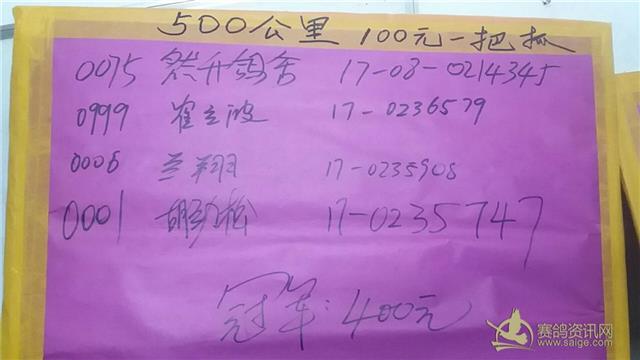 500公里 100元一把抓
0075 然升鸽舍 17-08-0214345
0999 崔立波 17-0236579
0006 兰翔 17-0235908
0001 胡劲松 17-0235747
冠军:400元
赛鸽资讯网
www.saige.com